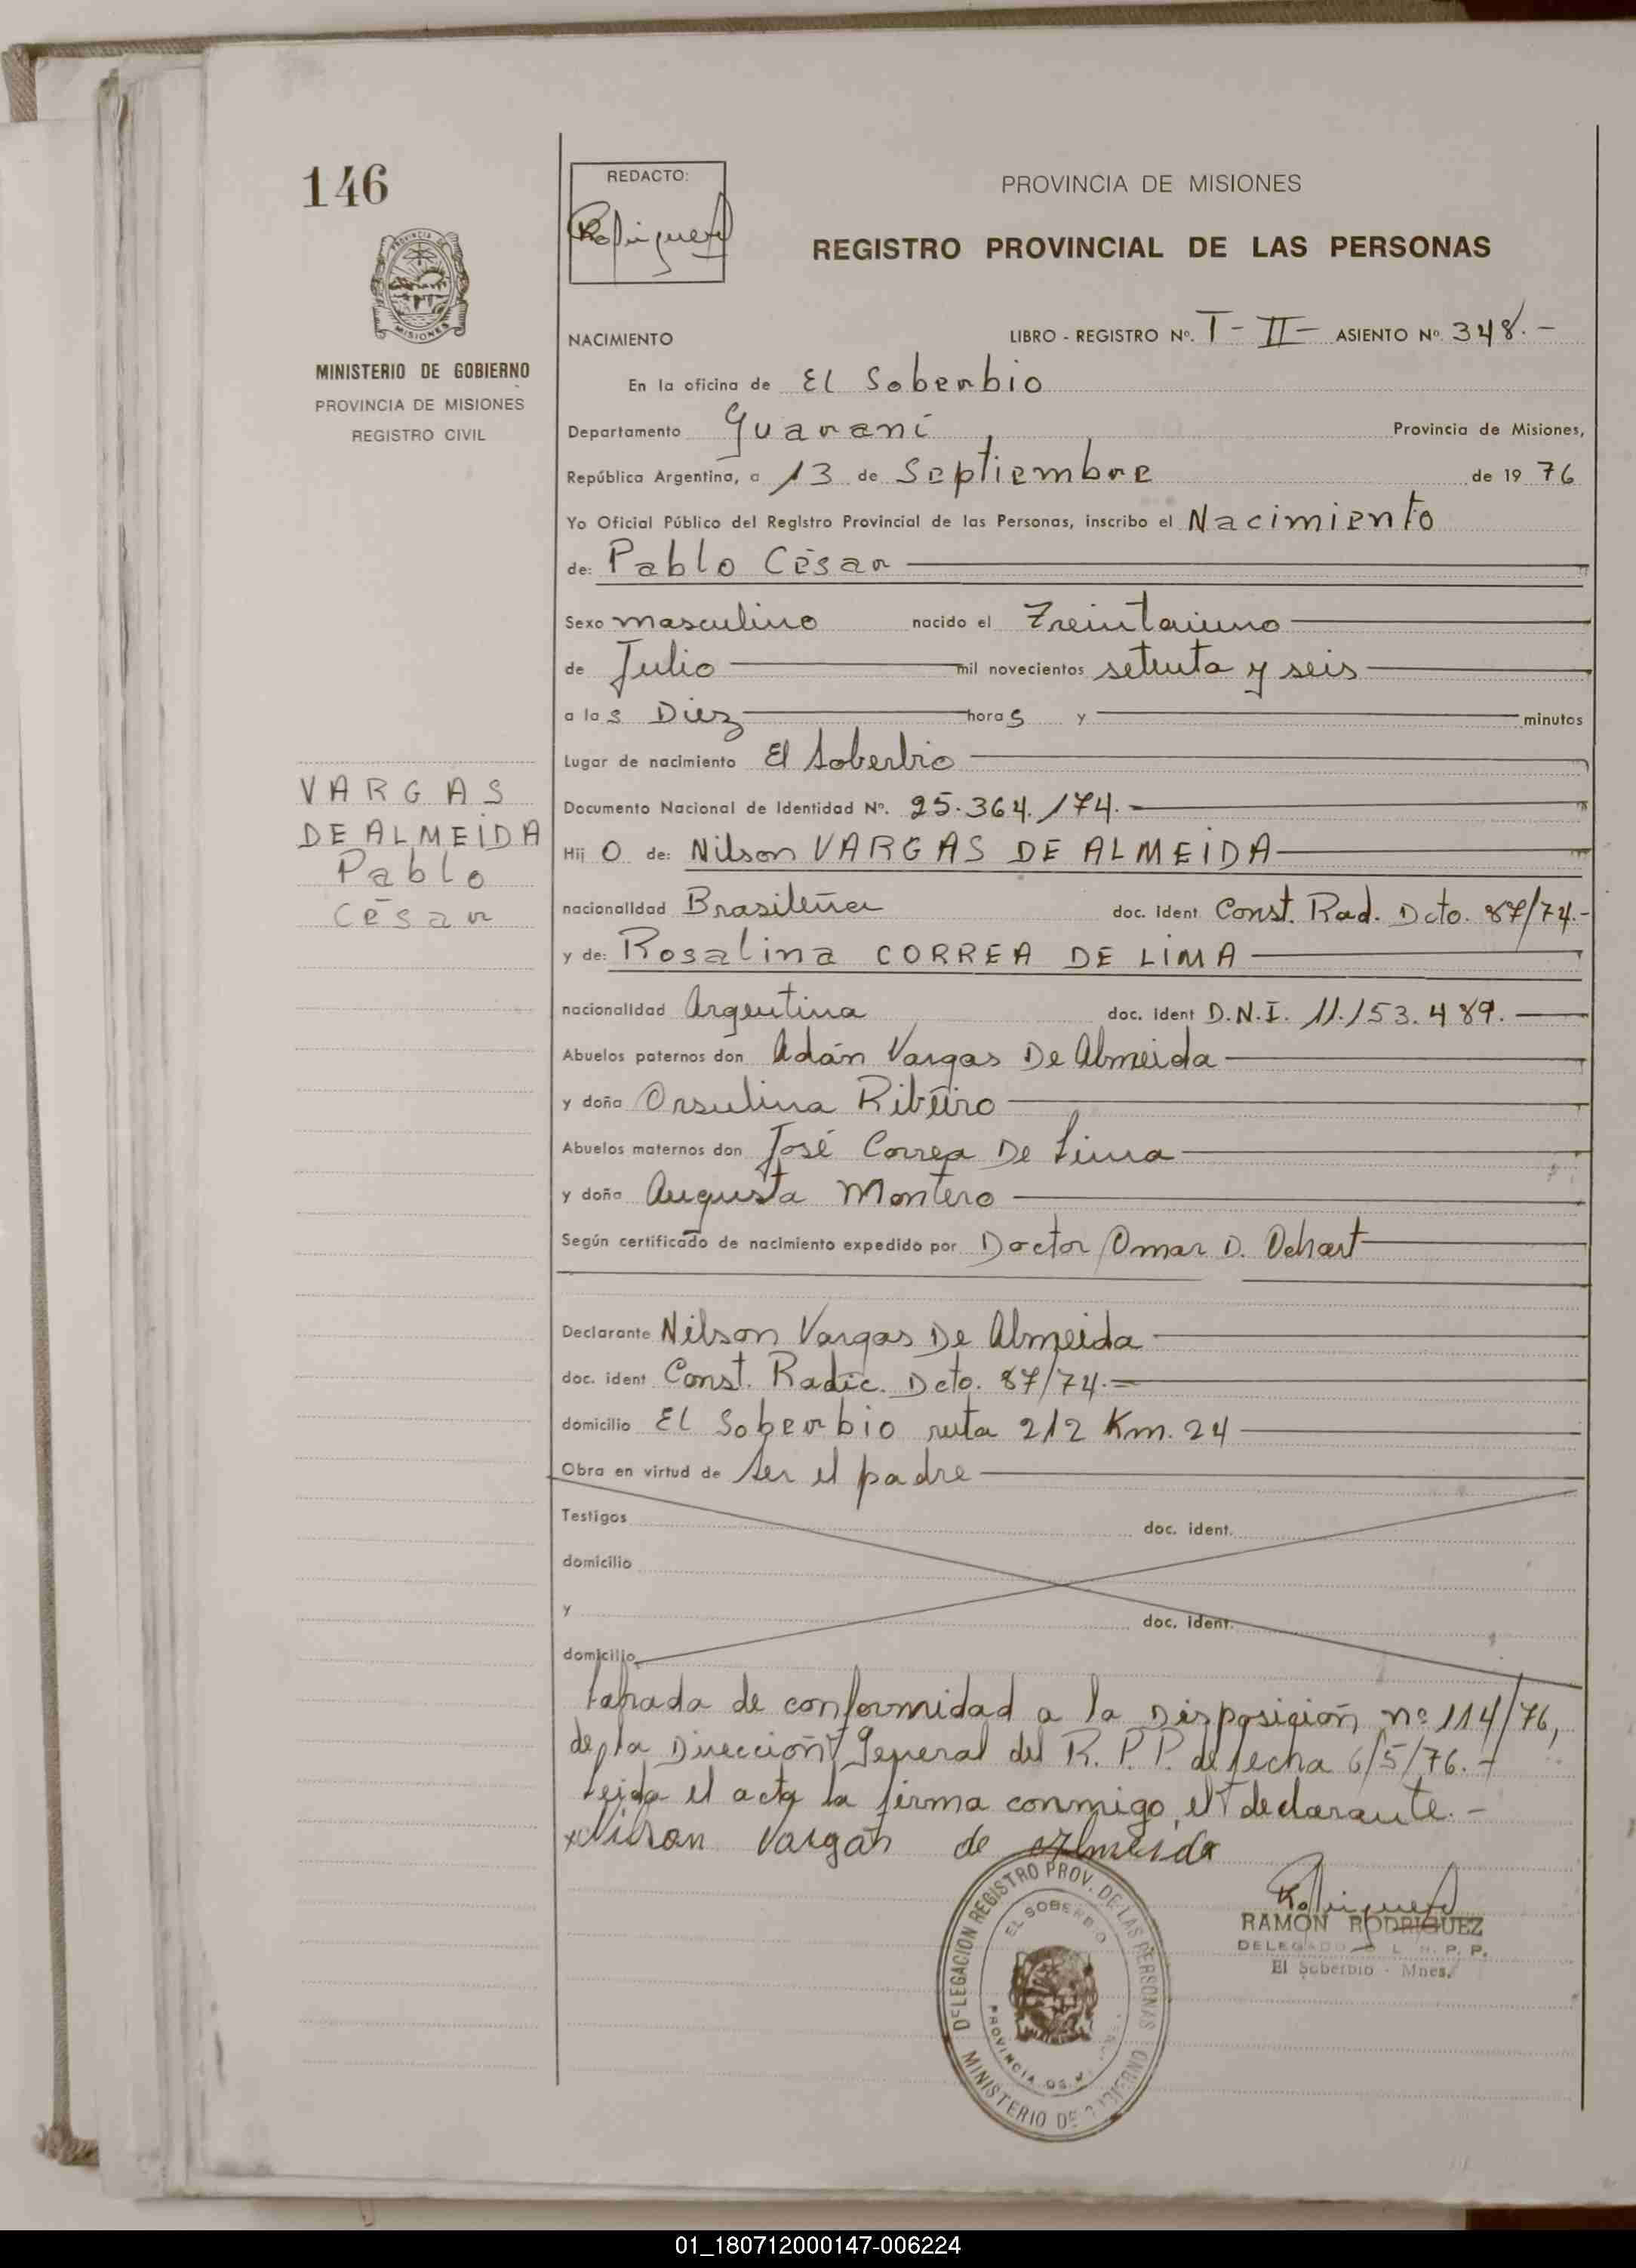 146
REDACTO:
Rodriguez
PROVINCIA DE MISIONES
REGISTRO PROVINCIAL DE LAS PERSONAS
PROVINCIA DE
MISIONES
MINISTERIO DE GOBIERNO
PROVINCIA DE MISIONES
REGISTRO CIVIL
NACIMIENTO LIBRO - REGISTRO Nº. T - II - ASIENTO Nº. 348. -
En la oficina de El Soberbio
Departamento Guaraní, Provincia de Misiones,
República Argentina, a 13 de Septiembre de 1976
Yo Oficial Público del Registro Provincial de las Personas, inscribo el Nacimiento
de: Pablo César
Sexo masculino nacido el Treintaiuno
de Julio mil novecientos setenta y seis
a las Diez horas y minutos
Lugar de nacimiento El Soberbio
Documento Nacional de Identidad Nº. 25.364.174.
Hijo de: Nilson VARGAS DE ALMEIDA
nacionalidad Brasileña doc. ident Const. Rad. Dcto. 87/74.-
y de: Rosalina CORREA DE LIMA
nacionalidad Argentina doc. ident D.N.I. 11.153.489.
Abuelos paternos don Adán Vargas De Almeida
y doña Orsulina Ribeiro
Abuelos maternos don José Correa De Lima
y doña Augusta Montero
Según certificado de nacimiento expedido por Doctor Omar D. Ochart
VARGAS
DE ALMEIDA
Pablo
César
Declarante Nilson Vargas De Almeida
doc. ident Const. Radic. Dcto. 87/74.-
domicilio El Soberbio ruta 212 Km. 24
Obra en virtud de ser el padre
Testigos doc. ident.
domicilio
y doc. ident.
domicilio
Labrada de conformidad a la Disposición nº 114/76,
de la Dirección General del R. P. P. de fecha 6/5/76. -
Leida el acta la firma conmigo el declarante. -
x Nilson Vargas de Almeida
DELEGACION REGISTRO PROV. DE LAS PERSONAS
EL SOBERBIO
PROVINCIA DE
MINISTERIO DE GOBIERNO
Rodriguez
RAMON RODRIGUEZ
DELEGADO R. P. P.
El Soberbio - Mnes.
01_180712000147-006224